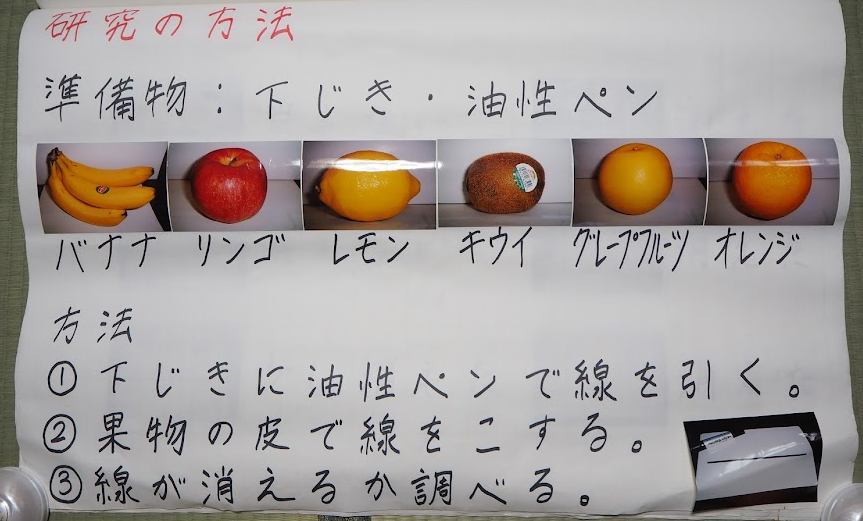 研究の方法
準備物：下じき・油性ペン
バナナ リンゴ レモン キウイ グレープフルーツ オレンジ
方法
①下じきに油性ペンで線を引く。
②果物の皮で線をこする。
③線が消えるか調べる。